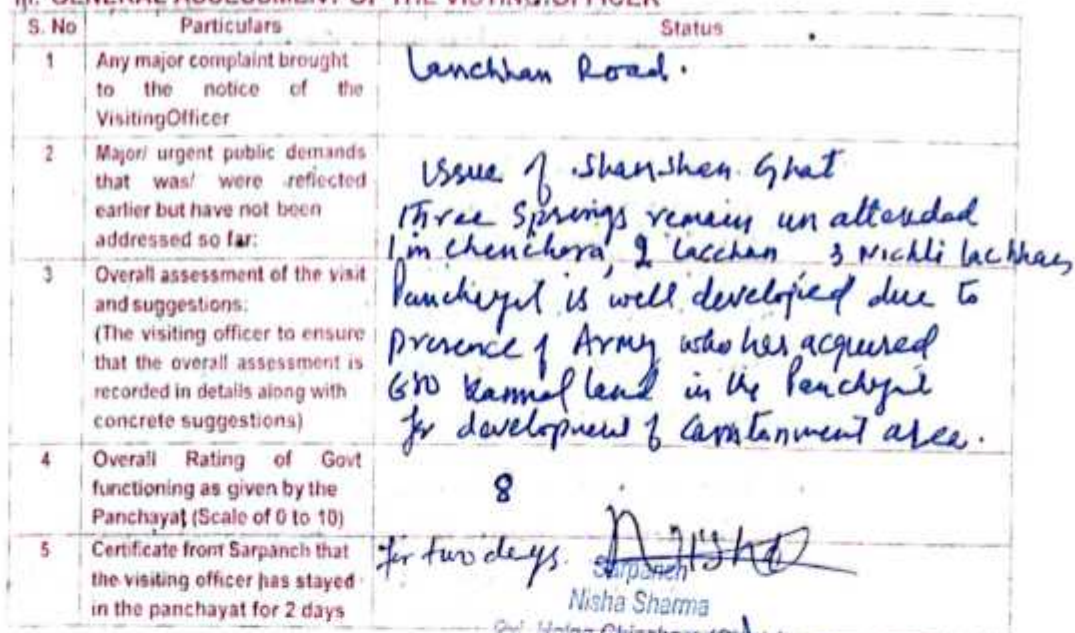 III. GENERAL ASSESSMENT OF THE VISTING OFFICER
S. No Particulars Status
1 Any major complaint brought to the notice of the VisitingOfficer
Lanchhan Road.
2 Major/ urgent public demands that was/ were reflected earlier but have not been addressed so far:
Issue of Shamshan Ghat
Three Springs remain un attended
1 in Chenchora, 2 Lacchan 3 Nichli Lachhan
3 Overall assessment of the visit and suggestions:
(The visiting officer to ensure that the overall assessment is recorded in details along with concrete suggestions)
Panchayat is well developed due to
presence of Army who has acquired
Kannal land in the Panchayat
for development of Cantonment area.
4 Overall Rating of Govt functioning as given by the Panchayat (Scale of 0 to 10)
8
5 Certificate front Sarpanch that the visiting officer has stayed in the panchayat for 2 days
for two days.
Sarpanch
Nisha Sharma